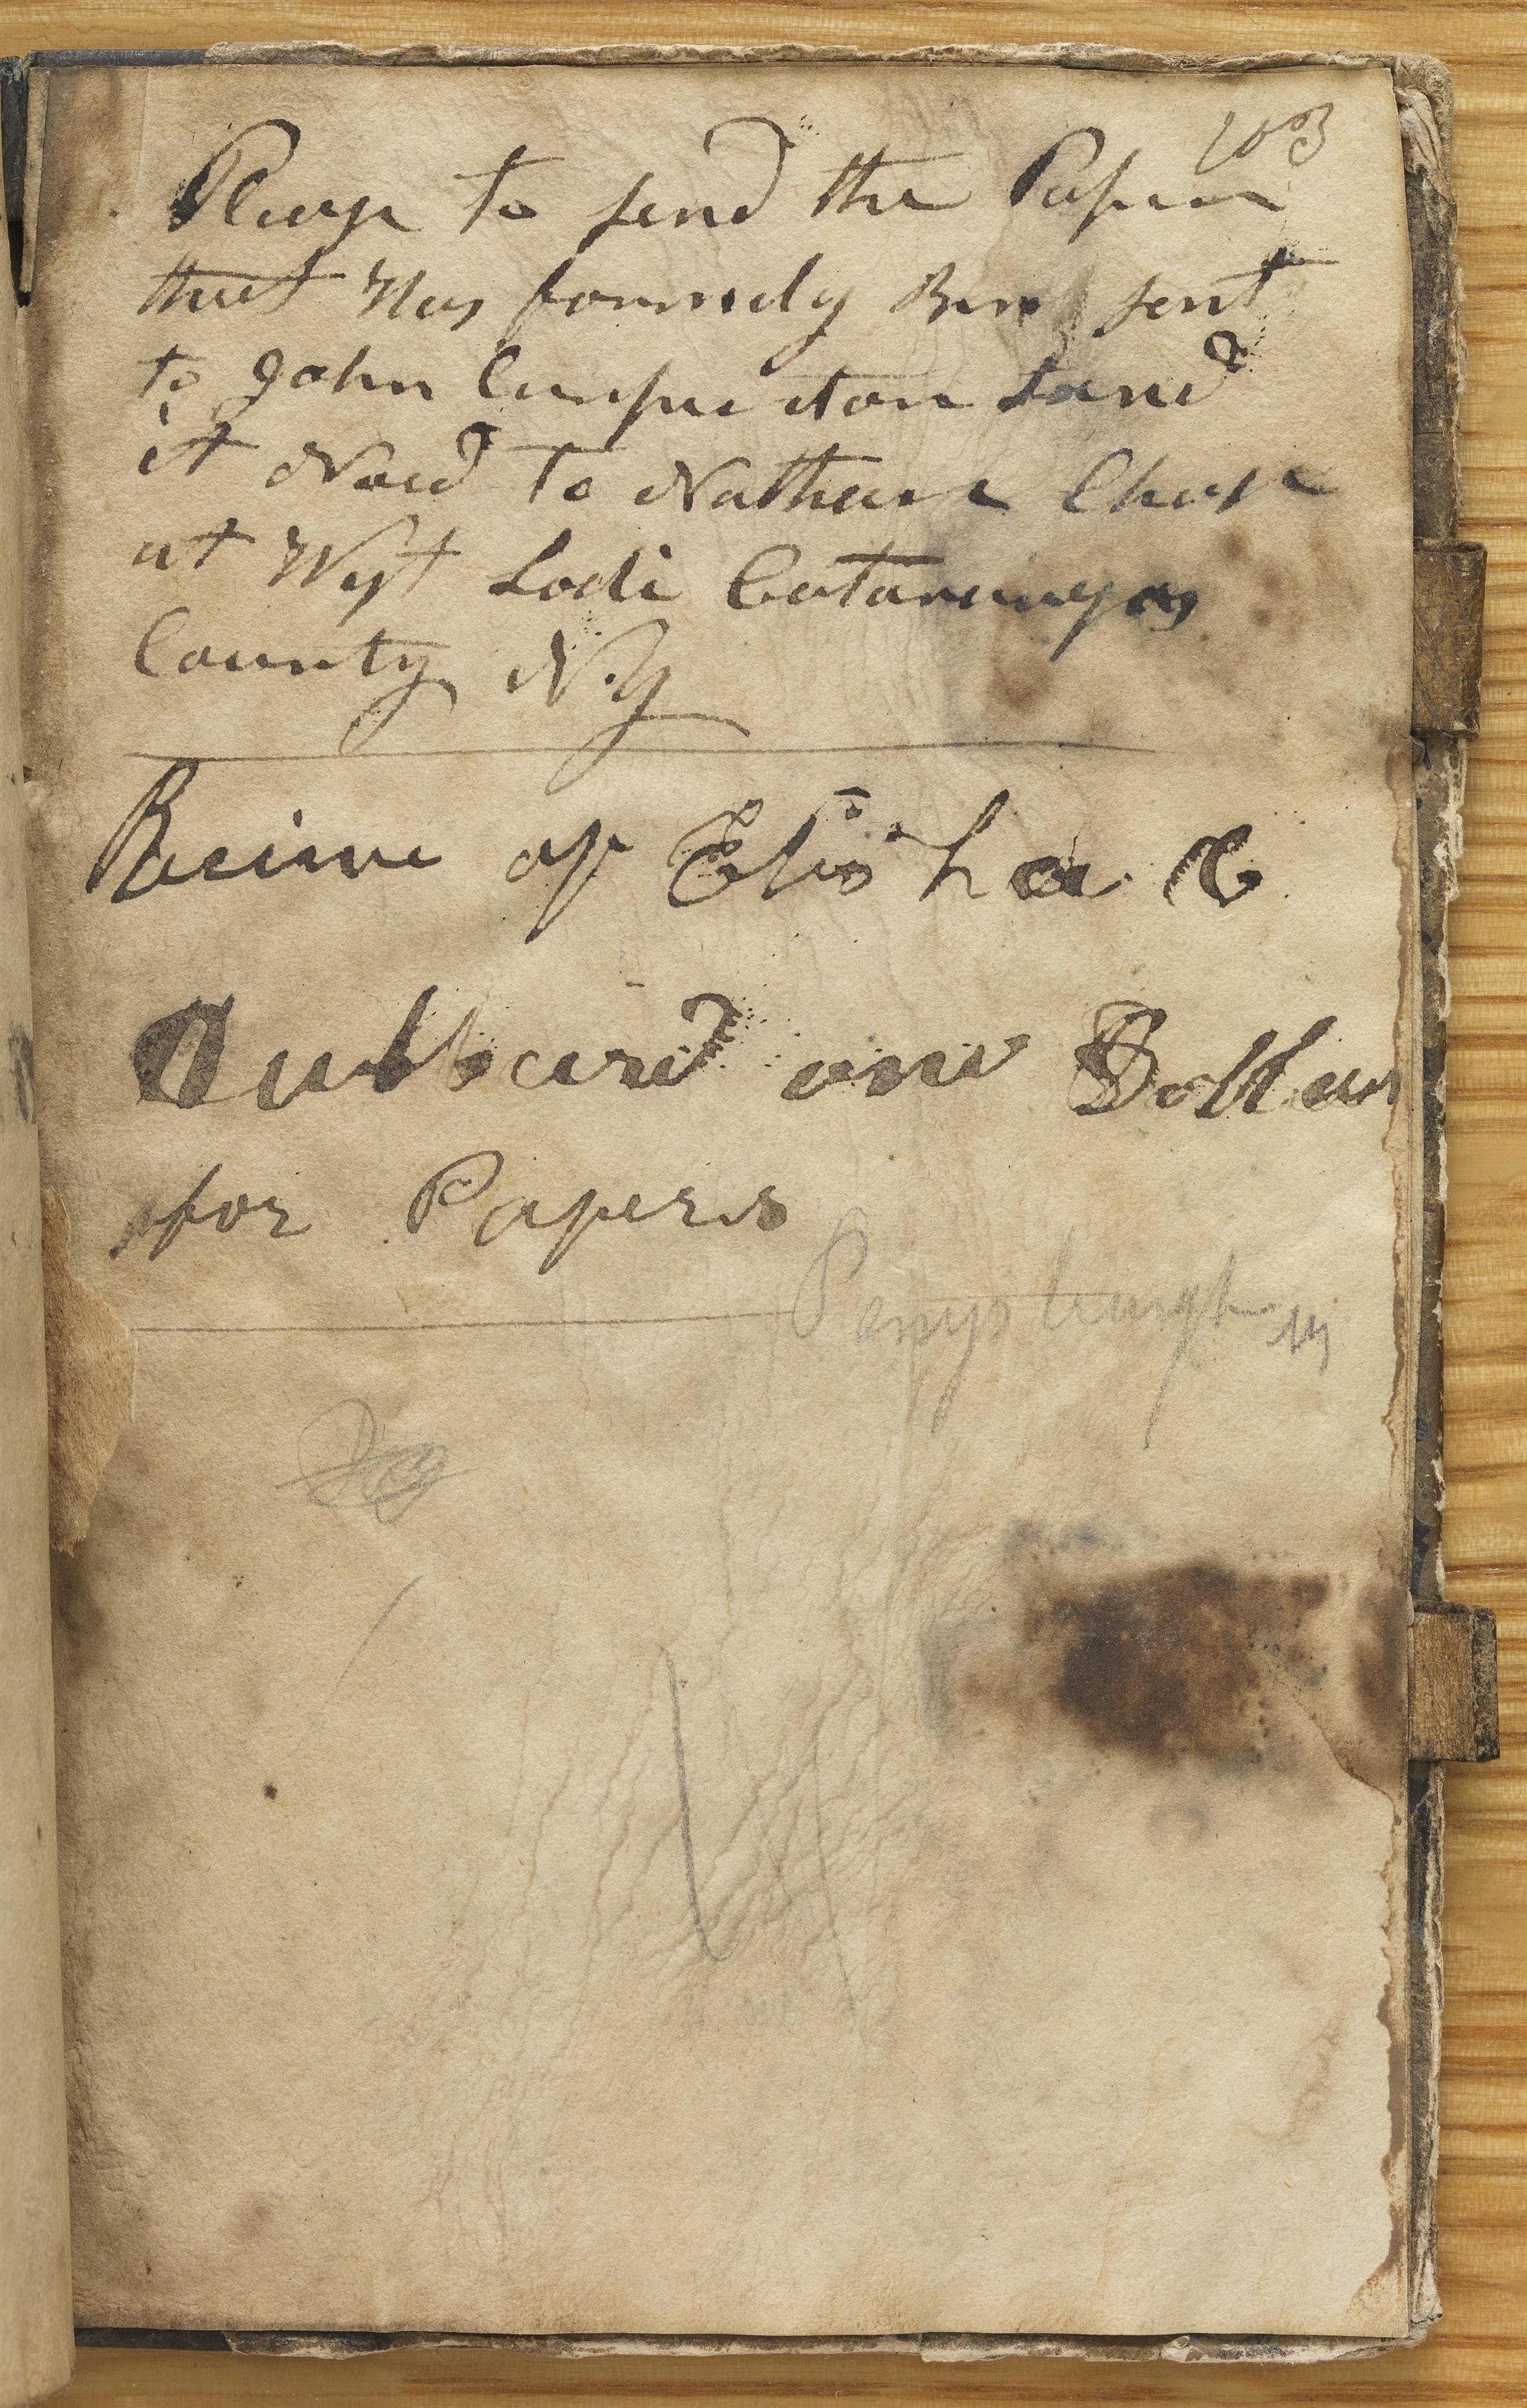 Please to send the Paper
that Has formely Ben sent
to John Carpenton Sand
it Now to Nathan Chase
at West Lodi Cataraugas
County N.Y
Receive of Elisha C
Hubbard one Dollar
for Papers
Perrysburgh